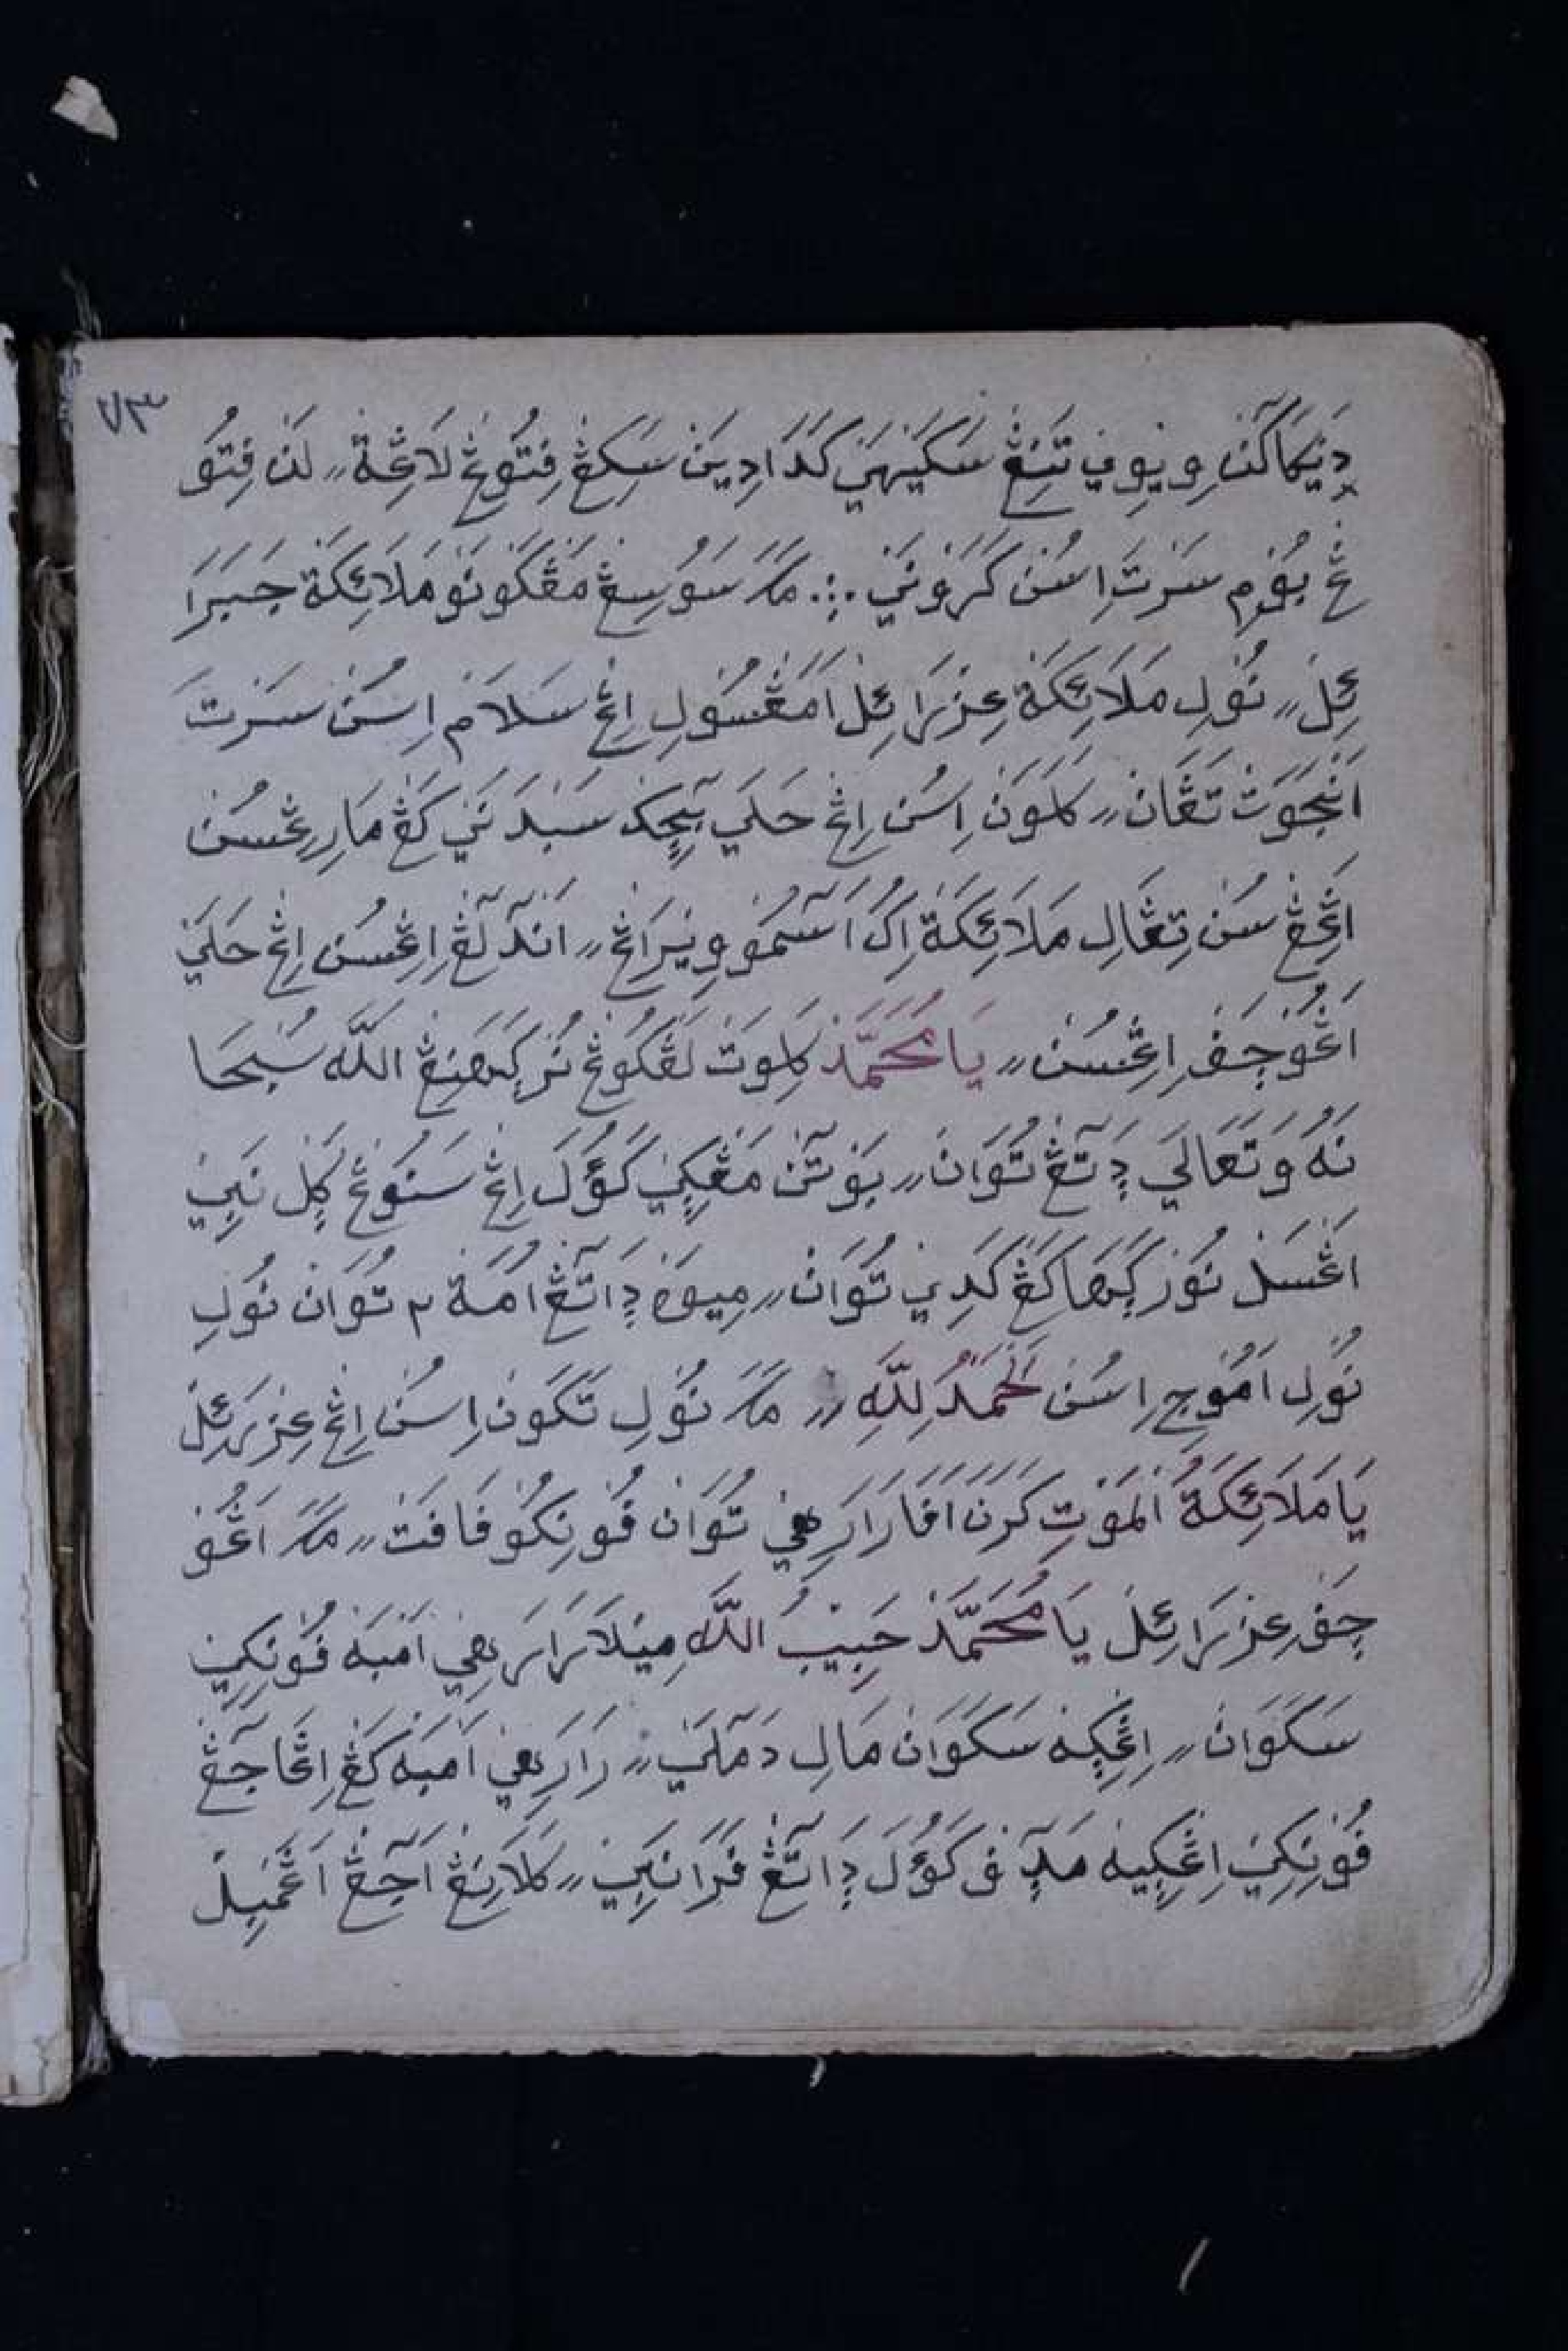 ٧٣
دِيْنِيْكَاكَنْ وِيْوِيْتِ تَنِڠْ سَكَيْهَيْ كَدَادِيَنْ سَكِڠْ فِتُوڠْ لَاڠِةْ ⹁ لَنْ فِتُو
ڠْ بُوْمِ سَرْتَ اِسُنْ كَرُوْنَيْ ؞ مَكَ سَوُسِڠْ مَڠْكَوْنَوْ مَلَائِكَةْ جَبَرَا
ئِلْ ⹁ نُوْلِ مَلَائِكَةْ عِزْرَائِلْ اَمَڠْسُوْلِ اِڠْ سَلَامْ اِسُنْ سَرْتَ
اَنْجَوَتْ تَڠَانْ ⹁ كَلَوَنْ اِسُنْ اِڠْ حَلَيْ بَچِيْكْ سَبَدَنَيْ كَڠْ مَارِڠْسُنْ
اَڠِڠْ سُنْ تِڠَالِ مَلَائِكَةْ اِكُ اَسَمُوْ وِيْرَاڠْ ⹁ اَنْدَلَڠْ اِڠْسُنْ اِڠْ حَلَيْ
اَڠُوْچَفْ اِڠْسُنْ ⹁ يَا مُحَمَّدْ كَلَوَتْ لَڠْكُوڠْ نُڮْرَهَنِڠْ اللّٰه سُبْحَا
نَهُ وَتَعَالَي دٍَاتَڠْ تُوَانْ ⹁ بَوْتَنْ مَڠْكَيْنَيْ كَوُلَ اِڠْ سَنُوڠْ كَلْ نَبِيْ
اَڠْسَلْ نُوْڮْرَهَا كَڠْ كَدِيْ تُوَانْ ⹁ مِيْوَهْ دٍَاتَڠْ اُمَةْ ٢ تُوَانْ نُوْلِ
نُوْلِ اَمُوْجِ اِسُنْ اَلْحَمْدُ لِلّٰهِ ⹁ مَكَ نُوْلِ تَكَوْنْ اِسُنْ اِڠْ عِزْرَئِلْ
يَا مَلَائِكَةُ الْمَوْتِ كَرَنَ اَفَا رَارَيْهِيْ تُوَانْ فُوْنِكُوْ فَافَتْ ⹁ مَكَ اَڠُوْ
چَفْ عِزْرَائِلْ يَا مُحَمَّدْ حَبِيْبُ اللّٰهِ مِيْلَا رَارَيْهِيْ اَمْبَهْ فُوْنِكِيْ
سَكَوَانْ ⹁ اِڠْكِهْ سَكَوَانْ مَالِ دَمَلَيْ ⹁ رَارَيْهِيْ اَمْبَهْ كَڠْ اِڠْا جَڠْ
فُوْنِكِيْ اِڠْكِيهْ مَدٍَفْ كَوُلَ دٍَاتَڠْ فَرَا نَبِيْ ⹁ كَلَانِڠْ اَجَڠْ اَڠَمْبِلْ